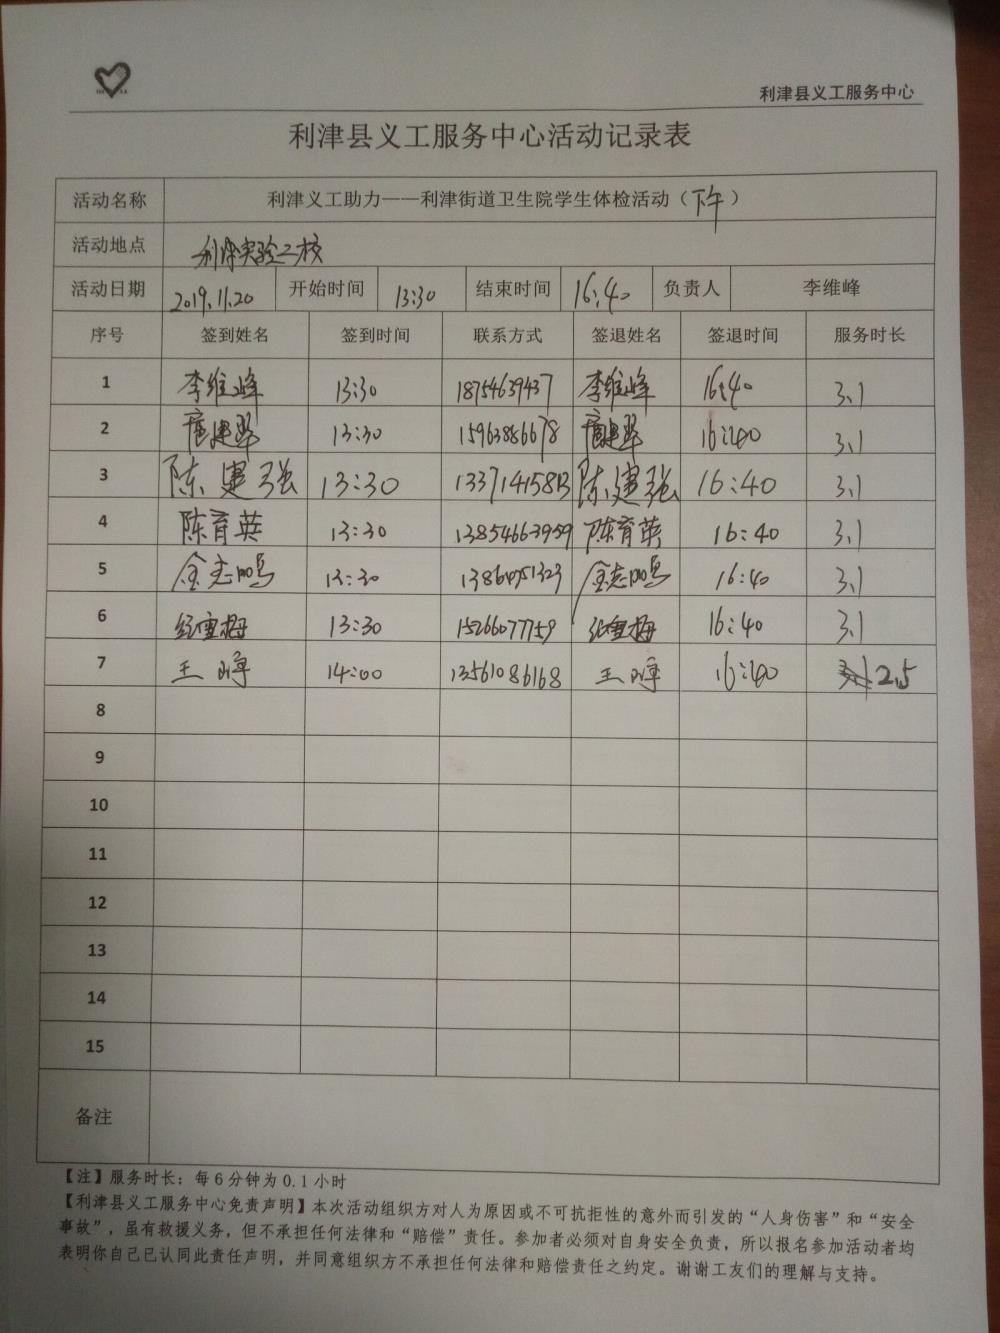 利津县义工服务中心
利津县义工服务中心活动记录表
活动名称 利津义工助力——利津街道卫生院学生体检活动（下午）
活动地点 利津实验二校
活动日期 2019.11.20 开始时间 13:30 结束时间 16:40 负责人 李维峰
序号 签到姓名 签到时间 联系方式 签退姓名 签退时间 服务时长
1 李维峰 13:30 18754639437 李维峰 16:40 3.1
2 13:30 15963886678 16:40 3.1
3 陈建强 13:30 陈建强 16:40 3.1
4 陈育英 13:30 13854663959 陈育英 16:40 3.1
5 金志鸣 13:30 金志鸣 16:40 3.1
6 13:30 15266077759 16:40 3.1
7 王 14:00 13561086168 王 16:40 2.5
8
9
10
11
12
13
14
15
备注
【注】服务时长：每6分钟为0.1小时
【利津县义工服务中心免责声明】本次活动组织方对人为原因或不可抗拒性的意外而引发的“人身伤害”和“安全
事故”，虽有救援义务，但不承担任何法律和“赔偿”责任。参加者必须对自身安全负责，所以报名参加活动者均
表明你自己已认同此责任声明，并同意组织方不承担任何法律和赔偿责任之约定。谢谢工友们的理解与支持。